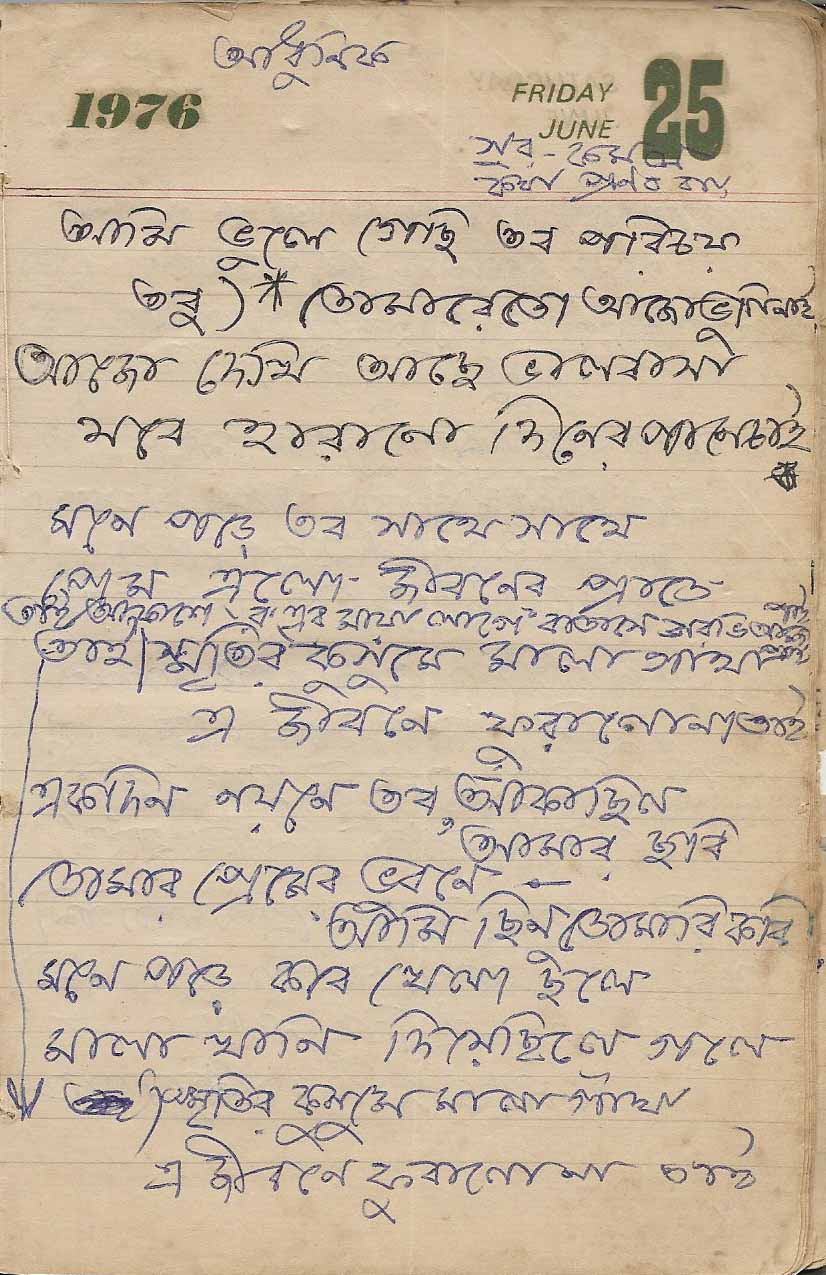 আধুনিক
1976 FRIDAY JUNE 25
সুর - কমল
কথা প্রণব রায়
আমি ভুলে গেছি তব পরিচয়
তবু) * তোমারেতো আজো ভুলি নাই
আজো দেখি আছে ভালবাসা
মবে হারানো দিনের পানে চাই
মনে পড়ে তব সাথে সাথে
প্রেম এলো - জীবনের প্রাতে
তাই আকাশে মায়া লাগে বাতাসে
তাই স্মৃতির কুসুমে মালা গাথা
এ জীবনে ফুরালোনা তাই
একদিন নয়নে তব আঁকাছিল
আমার ছবি
তোমার প্রেমের ভবনে -
আমি ছিনু তোমারি কবি
মনে পড়ে কবে খেলা ছলে
মালা খানি দিয়েছিলে গলে
স্মৃতির কুসুমে মালা গাঁথা
এ জীবনে ফুরালোনা তাই